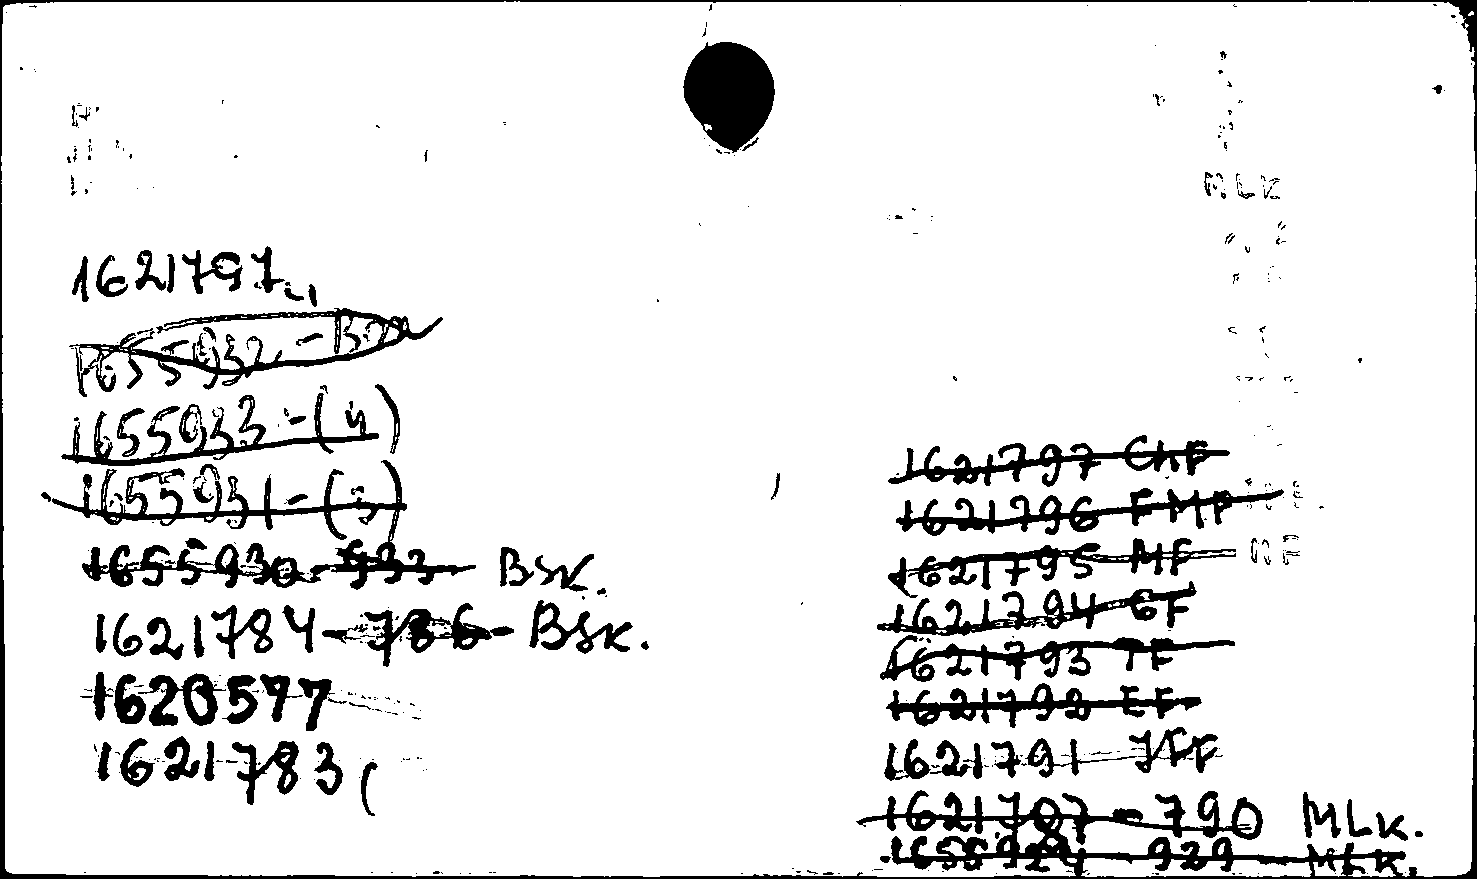 MLK
1621797
1655932 -
1655933 - (4)
1655931 - (3)
1655930 - 933 - Bsk.
1621784 - 786 - Bsk.
1620577
1621783
1621797 ChF
1621796 FMF
1621795 MF
MF
1621794 GF
1621793 TF
1621792 EF
1621791 JFF
1621787 - 790 MLK.
1655924 - 929 - MLK.